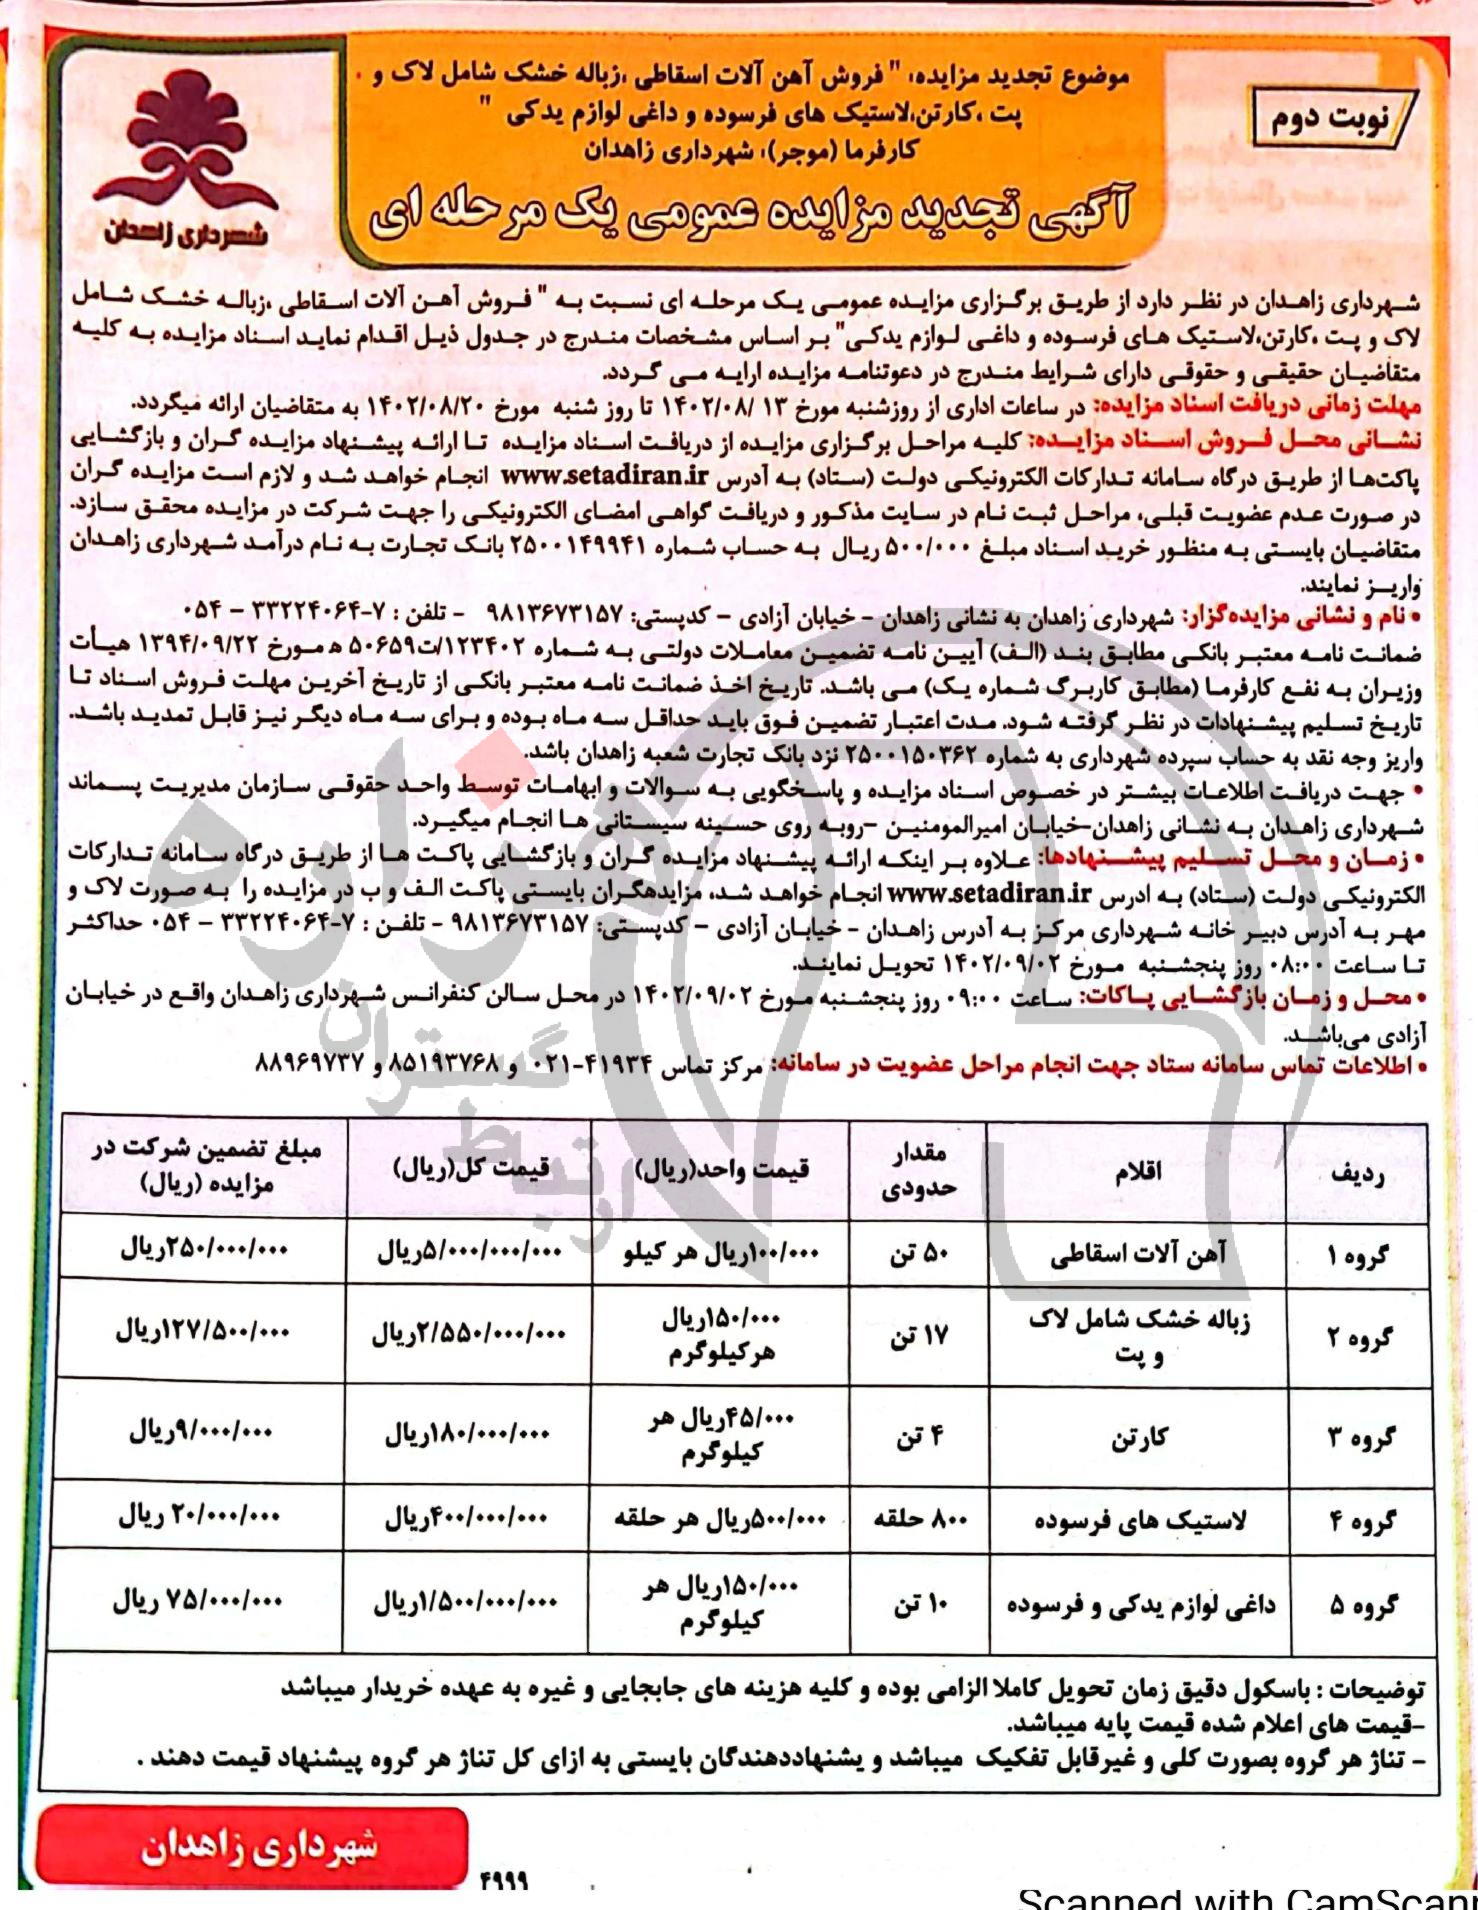 نوبت دوم
موضوع تجدید مزایده، " فروش آهن آلات اسقاطی ،زباله خشک شامل لاک و
پت ،کارتن،لاستیک های فرسوده و داغی لوازم یدکی "
کارفرما (موجر)، شهرداری زاهدان
آگهی تجدید مزایده عمومی یک مرحله ای
شهرداری زاهدان
شهرداری زاهدان در نظر دارد از طریق برگزاری مزایده عمومی یک مرحله ای نسبت به " فروش آهن آلات اسقاطی ،زباله خشک شامل
لاک و پت ،کارتن،لاستیک های فرسوده و داغی لوازم یدکی" بر اساس مشخصات مندرج در جدول ذیل اقدام نماید اسناد مزایده به کلیه
متقاضیان حقیقی و حقوقی دارای شرایط مندرج در دعوتنامه مزایده ارایه می گردد.
مهلت زمانی دریافت اسناد مزایده: در ساعات اداری از روزشنبه مورخ ۱۳ /۱۴۰۲/۰۸ تا روز شنبه مورخ ۱۴۰۲/۰۸/۲۰ به متقاضیان ارائه میگردد.
نشانی محل فروش اسناد مزایده: کلیه مراحل برگزاری مزایده از دریافت اسناد مزایده تا ارائه پیشنهاد مزایده گران و بازگشایی
پاکت‌ها از طریق درگاه سامانه تدارکات الکترونیکی دولت (ستاد) به آدرس www.setadiran.ir انجام خواهد شد و لازم است مزایده گران
در صورت عدم عضویت قبلی، مراحل ثبت نام در سایت مذکور و دریافت گواهی امضای الکترونیکی را جهت شرکت در مزایده محقق سازد.
متقاضیان بایستی به منظور خرید اسناد مبلغ ۵۰۰/۰۰۰ ریال به حساب شماره ۲۵۰۰۱۴۹۹۴۱ بانک تجارت به نام درآمد شهرداری زاهدان
واریز نمایند.
• نام و نشانی مزایده‌گزار: شهرداری زاهدان به نشانی زاهدان - خیابان آزادی - کدپستی: ۹۸۱۳۶۷۳۱۵۷ - تلفن : ۷-۳۳۲۲۴۰۶۴ - ۰۵۴
ضمانت نامه معتبر بانکی مطابق بند (الف) آیین نامه تضمین معاملات دولتی به شماره ۱۲۳۴۰۲/ت۵۰۶۵۹ ه مورخ ۱۳۹۴/۰۹/۲۲ هیأت
وزیران به نفع کارفرما (مطابق کاربرگ شماره یک) می باشد. تاریخ اخذ ضمانت نامه معتبر بانکی از تاریخ آخرین مهلت فروش اسناد تا
تاریخ تسلیم پیشنهادات در نظر گرفته شود. مدت اعتبار تضمین فوق باید حداقل سه ماه بوده و برای سه ماه دیگر نیز قابل تمدید باشد.
واریز وجه نقد به حساب سپرده شهرداری به شماره ۲۵۰۰۱۵۰۳۶۲ نزد بانک تجارت شعبه زاهدان باشد.
• جهت دریافت اطلاعات بیشتر در خصوص اسناد مزایده و پاسخگویی به سوالات و ابهامات توسط واحد حقوقی سازمان مدیریت پسماند
شهرداری زاهدان به نشانی زاهدان-خیابان امیرالمومنین -روبه روی حسینه سیستانی ها انجام میگیرد.
• زمان و محل تسلیم پیشنهادها: علاوه بر اینکه ارائه پیشنهاد مزایده گران و بازگشایی پاکت ها از طریق درگاه سامانه تدارکات
الکترونیکی دولت (ستاد) به ادرس www.setadiran.ir انجام خواهد شد، مزایدهگران بایستی پاکت الف و ب در مزایده را به صورت لاک و
مهر به آدرس دبیر خانه شهرداری مرکز به آدرس زاهدان - خیابان آزادی - کدپستی: ۹۸۱۳۶۷۳۱۵۷ - تلفن : ۷-۳۳۲۲۴۰۶۴ - ۰۵۴ حداکثر
تا ساعت ۰۸:۰۰ روز پنجشنبه مورخ ۱۴۰۲/۰۹/۰۲ تحویل نمایند.
• محل و زمان بازگشایی پاکات: ساعت ۰۹:۰۰ روز پنجشنبه مورخ ۱۴۰۲/۰۹/۰۲ در محل سالن کنفرانس شهرداری زاهدان واقع در خیابان
آزادی می‌باشد.
• اطلاعات تماس سامانه ستاد جهت انجام مراحل عضویت در سامانه: مرکز تماس ۴۱۹۳۴-۰۲۱ و ۸۵۱۹۳۷۶۸ و ۸۸۹۶۹۷۳۷
هزاره
گستران
ارتباط
ردیف اقلام مقدار حدودی قیمت واحد(ریال) قیمت کل(ریال) مبلغ تضمین شرکت در مزایده (ریال)
گروه ۱ آهن آلات اسقاطی ۵۰ تن ۱۰۰/۰۰۰ریال هر کیلو ۵/۰۰۰/۰۰۰/۰۰۰ریال ۲۵۰/۰۰۰/۰۰۰ریال
گروه ۲ زباله خشک شامل لاک و پت ۱۷ تن ۱۵۰/۰۰۰ریال هرکیلوگرم ۲/۵۵۰/۰۰۰/۰۰۰ریال ۱۲۷/۵۰۰/۰۰۰ریال
گروه ۳ کارتن ۴ تن ۴۵/۰۰۰ریال هر کیلوگرم ۱۸۰/۰۰۰/۰۰۰ریال ۹/۰۰۰/۰۰۰ریال
گروه ۴ لاستیک های فرسوده ۸۰۰ حلقه ۵۰۰/۰۰۰ریال هر حلقه ۴۰۰/۰۰۰/۰۰۰ریال ۲۰/۰۰۰/۰۰۰ ریال
گروه ۵ داغی لوازم یدکی و فرسوده ۱۰ تن ۱۵۰/۰۰۰ریال هر کیلوگرم ۱/۵۰۰/۰۰۰/۰۰۰ریال ۷۵/۰۰۰/۰۰۰ ریال
توضیحات : باسکول دقیق زمان تحویل کاملا الزامی بوده و کلیه هزینه های جابجایی و غیره به عهده خریدار میباشد
-قیمت های اعلام شده قیمت پایه میباشد.
- تناژ هر گروه بصورت کلی و غیرقابل تفکیک میباشد و یشنهاددهندگان بایستی به ازای کل تناژ هر گروه پیشنهاد قیمت دهند .
شهرداری زاهدان
۴۹۹۹
Scanned with CamScann